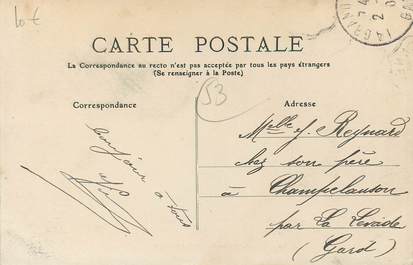 10 €
CARTE POSTALE
La Correspondance au recto n'est pas acceptée par tous les pays étrangers
(Se renseigner à la Poste)
53
Correspondance
Adresse
bonjour à tous
Melle J. Reynard
chez son père
à Champclauson
par La Levade
(Gard)